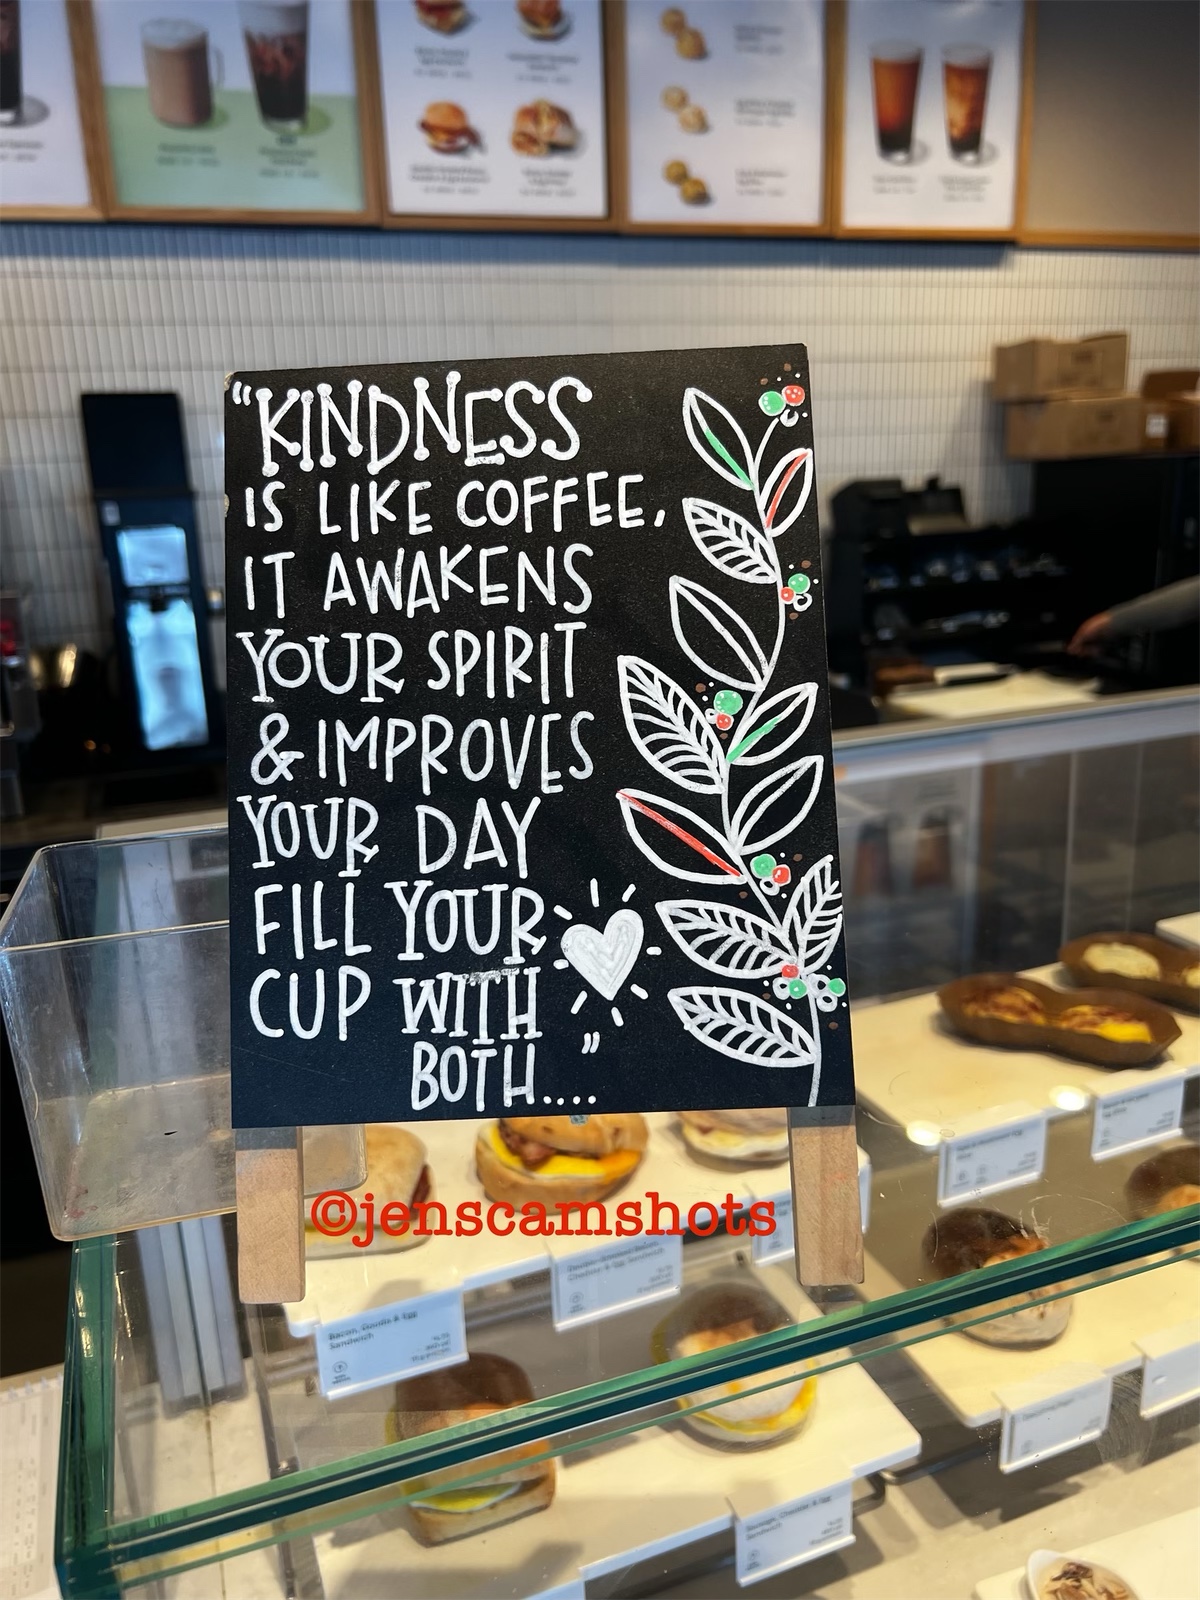 “KINDNESS
IS LIKE COFFEE,
IT AWAKENS
YOUR SPIRIT
& IMPROVES
YOUR DAY
FILL YOUR
CUP WITH
BOTH....”
©jenscamshots
Bacon, Gouda & Egg
Sandwich
Double-Smoked Bacon,
Cheddar & Egg Sandwich
Sausage, Cheddar & Egg
Sandwich